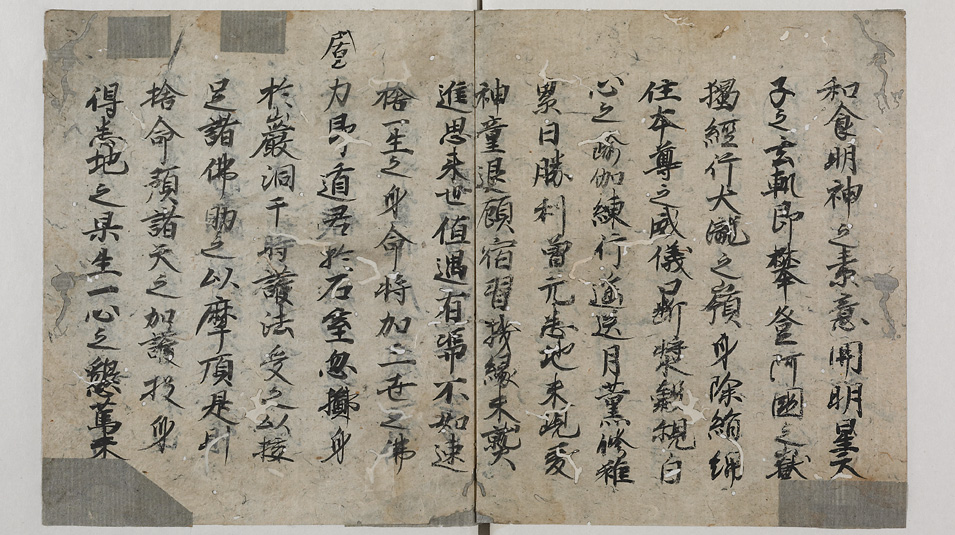 和食明神之素意開明星天
子之玄軌即攀登阿國之嶽
獨經行大瀧之嶺身除絹綿
住本尊之威儀口断漿穀觀白
心之瑜伽練行遥送月薫修雖
累日勝利曽元悉地未現爰
神童退顧宿習機縁未熟
進思来世値遇有憑不如速
捨一生之身命將加三世之佛
力即道居於石室忽擲身
於巌洞干時護法受之以接
足諸佛助之以摩頂是則
捨命顔諸天之加護投身
得悉地之果生一心之懇篤未